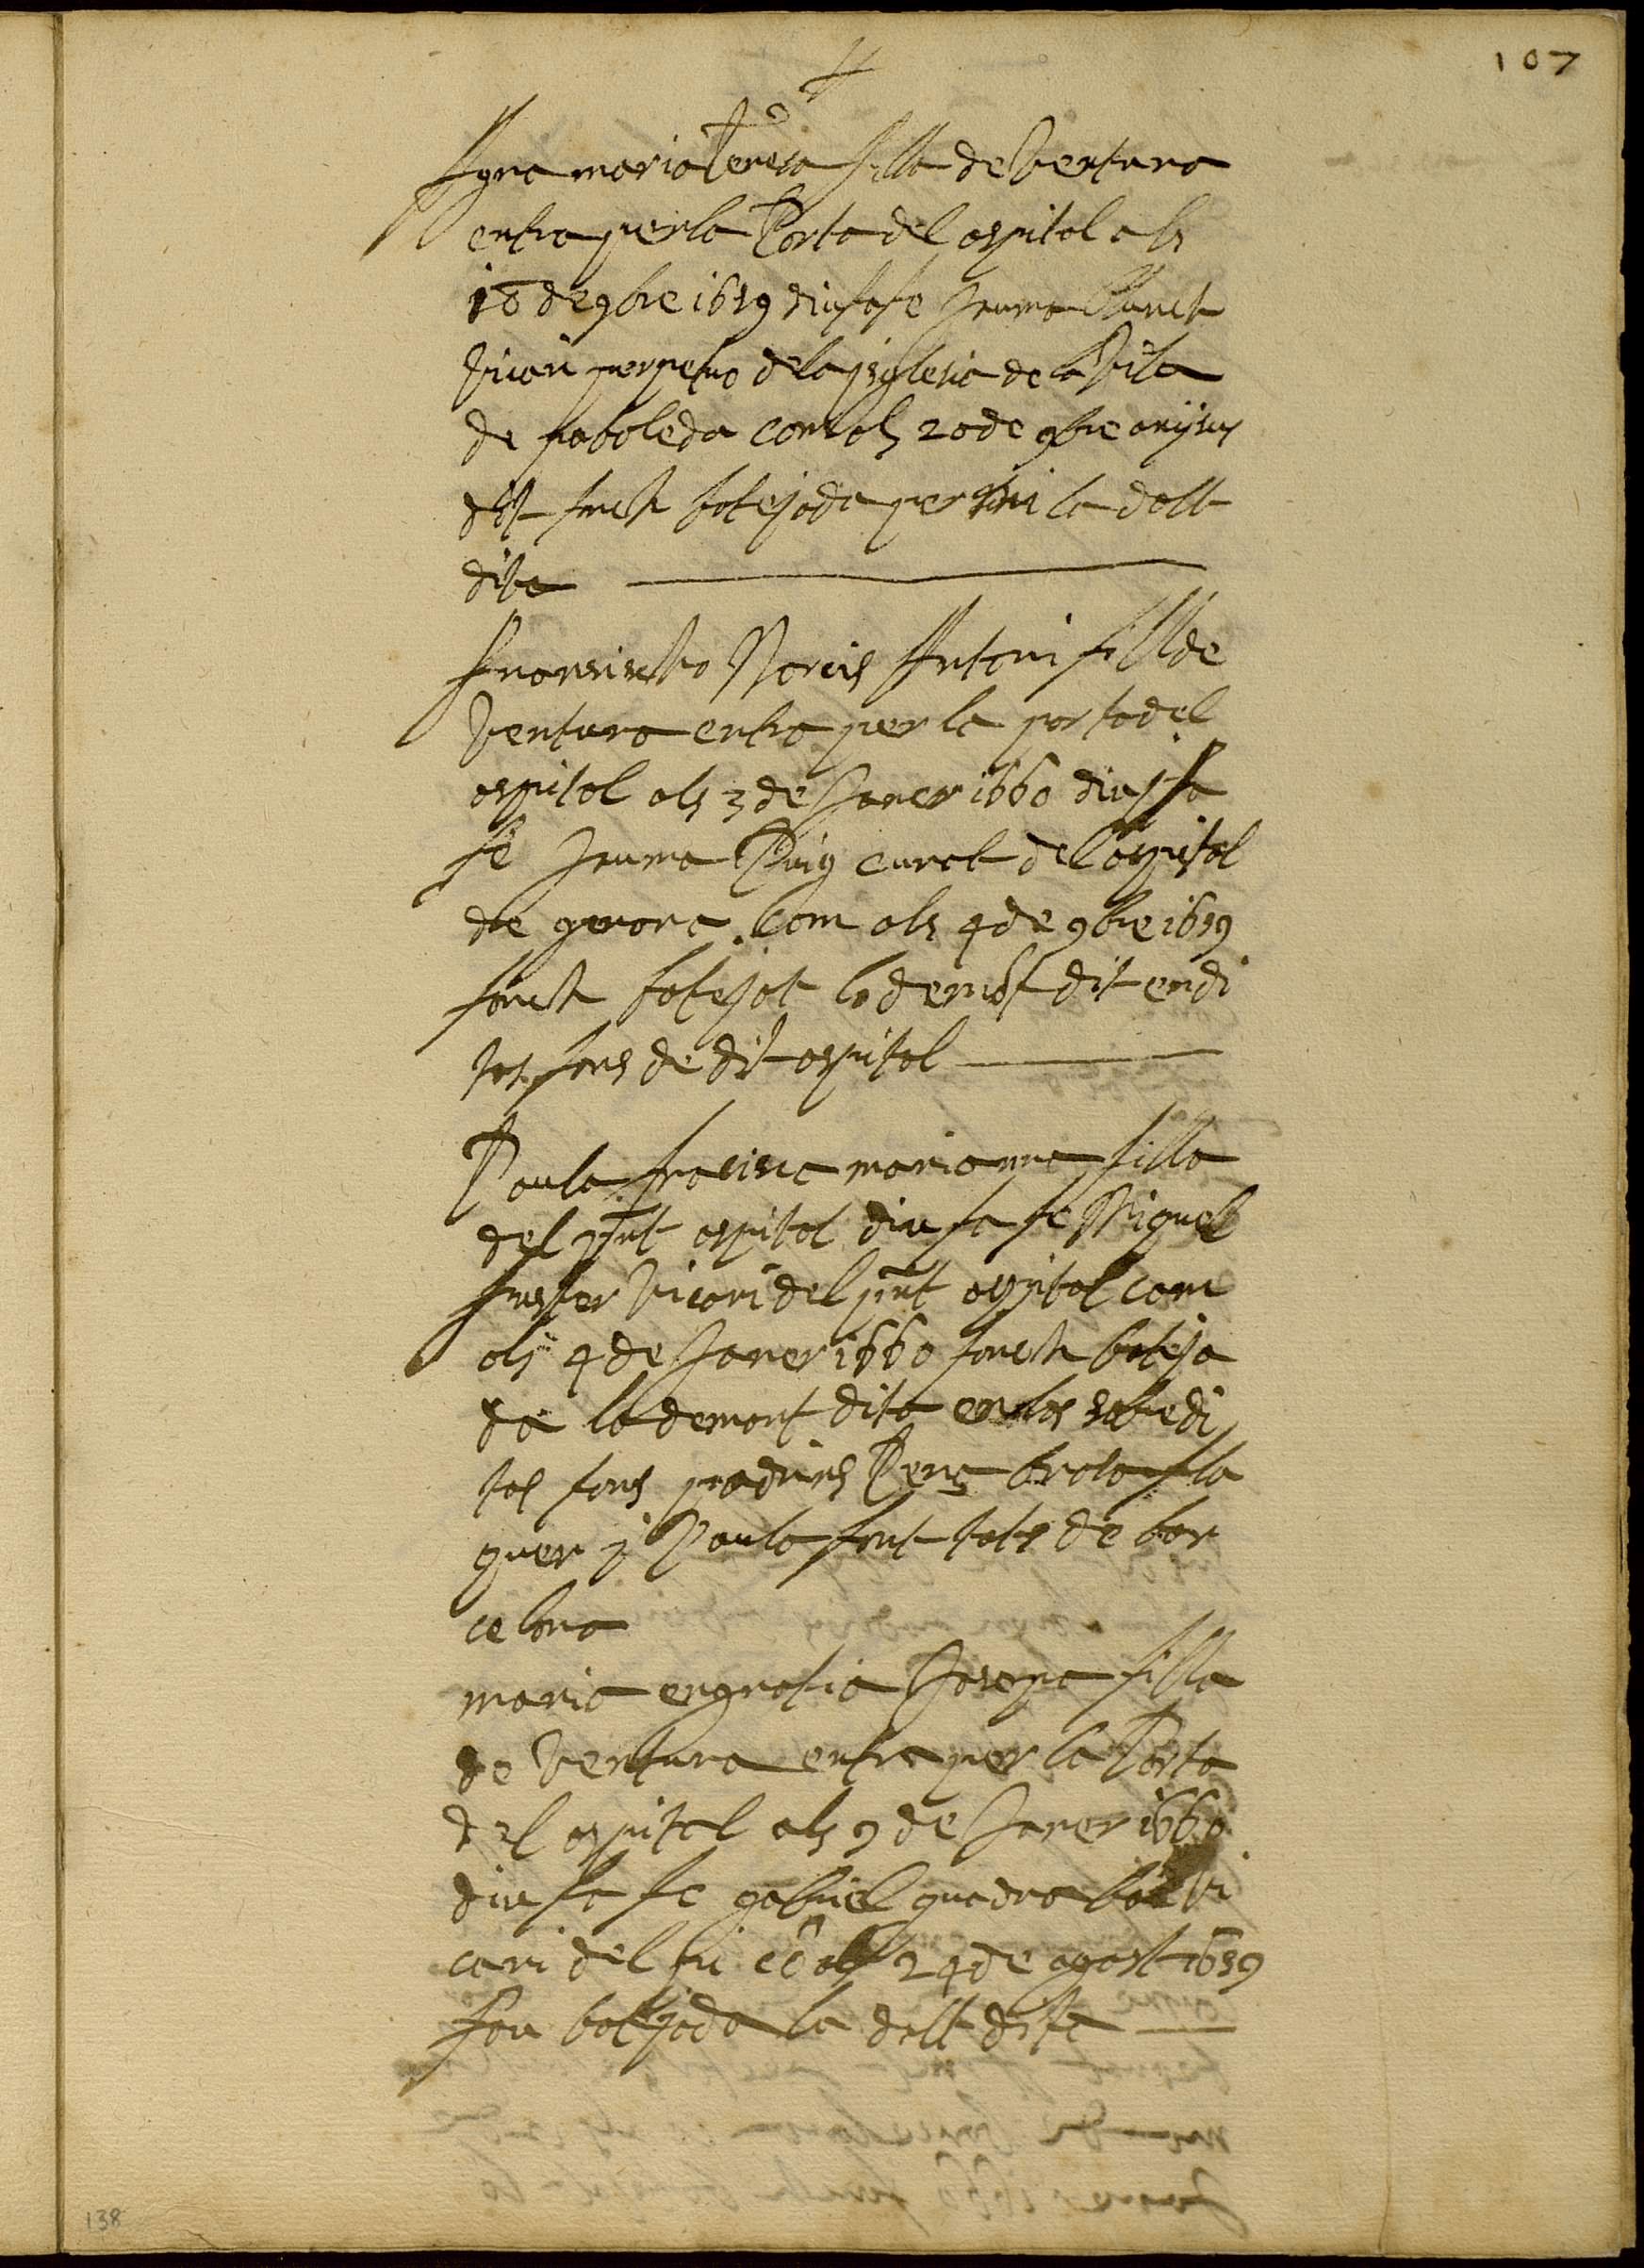 107
Agna maria Teresa filla de Ventura
entra per la Porta del ospital als
18 de 9bre 1659 diu fa fe Jauma Llunch
Vicari perpetuo de la jsglesia de la Vila
de paboleda com als 20 de 9bre
fonch batejada per mi la dalt
dita
Fransischo Narcis Antoni fill de
Ventura entra per la porta del
ospital als 3 de Janer 1660 diu fa
fe Jauma Puig curat del ospital
de gerona Com als 4 de 9bre 1659
fonch batejat lo demōt dit en di
tas fons de dit ospital
Paula fracisca marianna filla
del pnt ospital diu fa fe Miquel
fuster Vicari del pnt ospital com
als 4 de Janer 1660 fonch bateja
da la demont dita en las sobredi
tas fons padrins Pere fla
quer y Paula font tots de bar
celona
maria engratia Josepa filla
de Ventura entra per la Porta
del ospital als 9 de Janer 1660
diu fa fe gabriel quadra Vi
cari del pi cō als 24 de agost 1659
fou batejada la dalt dita
138